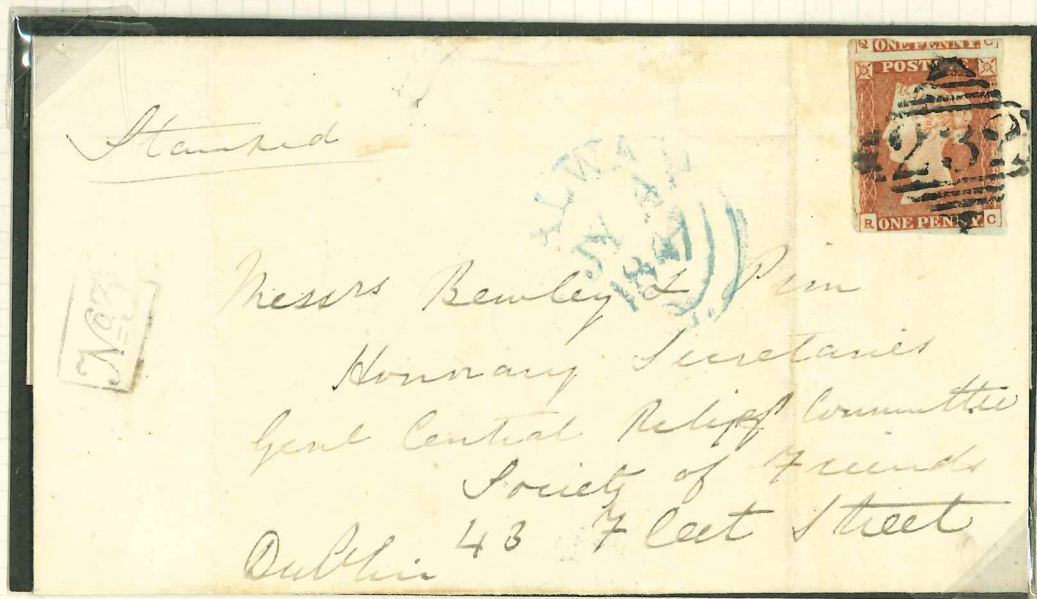 Q ONE PENNY C
POSTAGE
232
R ONE PENNY C
Stamped
ALWA
JY 4
1847
No. 3
Messrs Bewley & Pim
Honorary Secretaries
Genl Central Relief Committee
Society of Friends
43 Fleet Street
Dublin